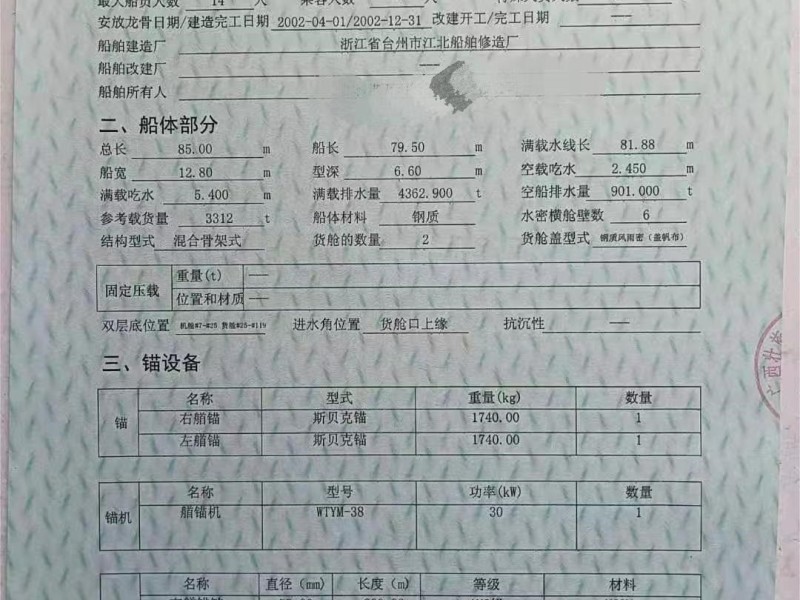 最大船员人数 14 人 乘客人数 人
安放龙骨日期/建造完工日期 2002-04-01/2002-12-31 改建开工/完工日期 —
船舶建造厂 浙江省台州市江北船舶修造厂
船舶改建厂 —
船舶所有人
二、船体部分
总长 85.00 m 船长 79.50 m 满载水线长 81.88 m
船宽 12.80 m 型深 6.60 m 空载吃水 2.450 m
满载吃水 5.400 m 满载排水量 4362.900 t 空船排水量 901.000 t
参考载货量 3312 t 船体材料 钢质 水密横舱壁数 6
结构型式 混合骨架式 货舱的数量 2 货舱盖型式 钢质风雨密（盖帆布）
固定压载 重量(t) —
位置和材质 —
双层底位置 机舱#7-#25 货舱#25-#119 进水角位置 货舱口上缘 抗沉性 —
三、锚设备
锚 名称 型式 重量(kg) 数量
右艏锚 斯贝克锚 1740.00 1
左艏锚 斯贝克锚 1740.00 1
锚机 名称 型号 功率(kW) 数量
艏锚机 WTYM-38 30 1
名称 直径 (mm) 长度 (m) 等级 材料